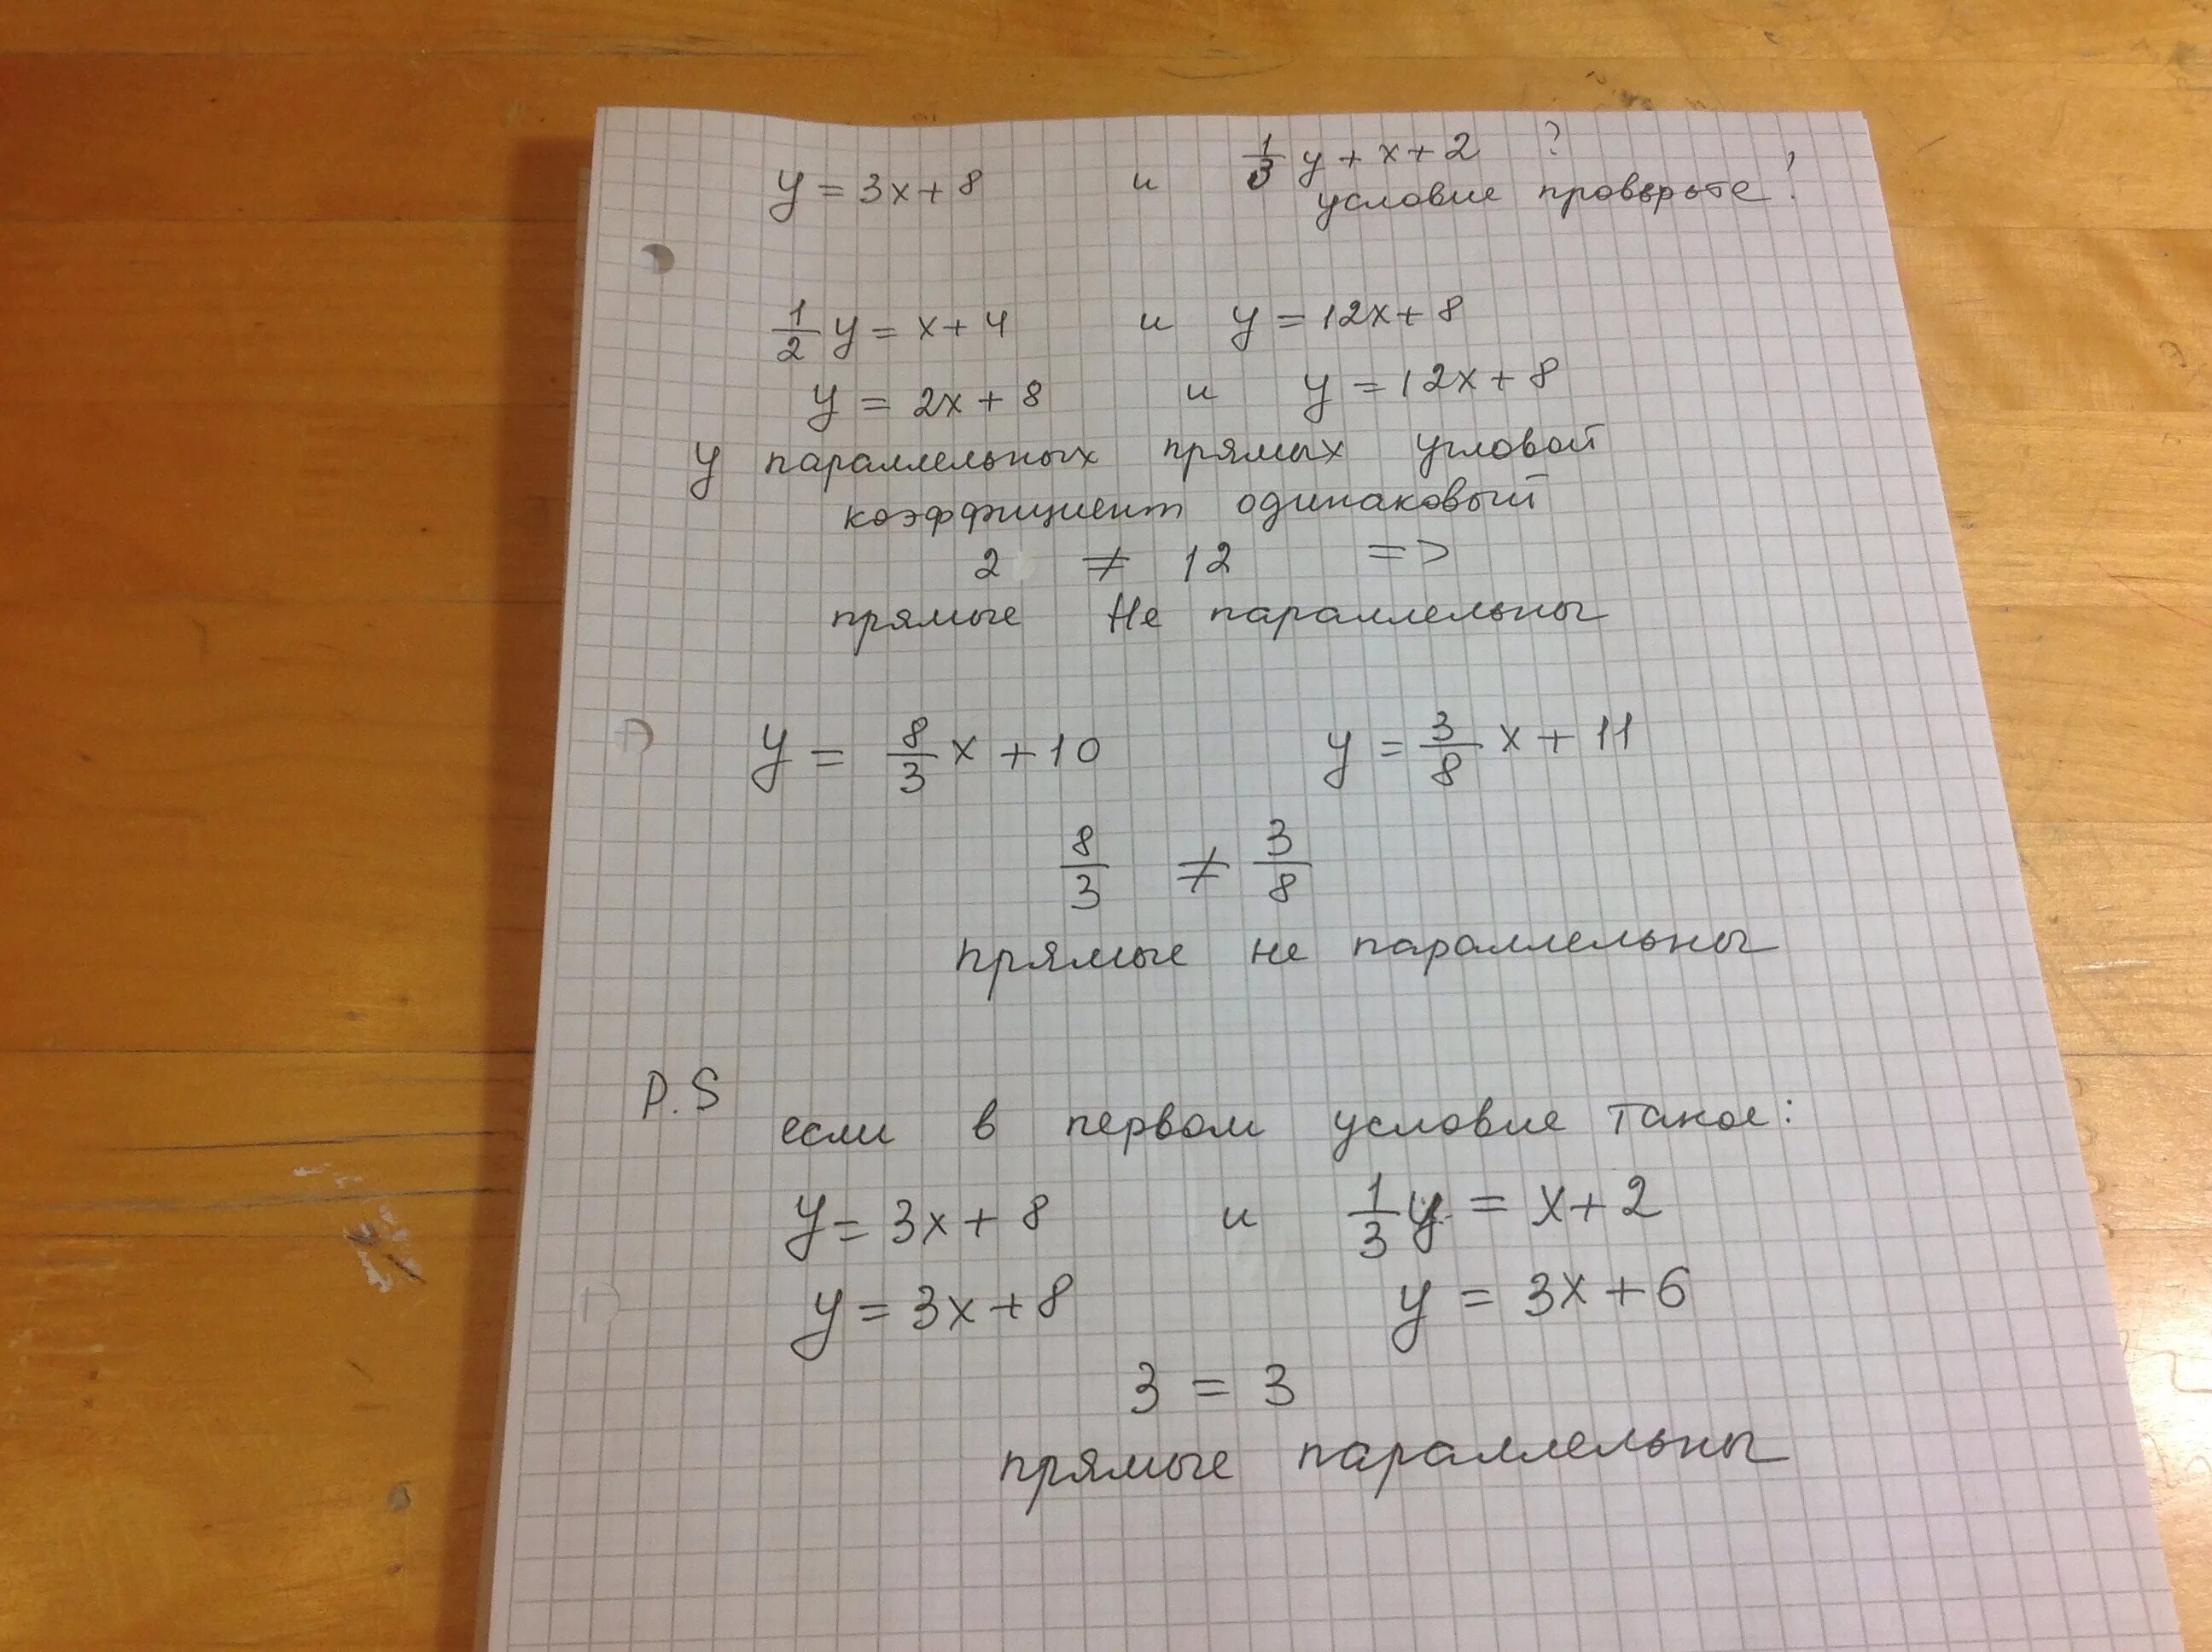 y = 3x + 8 и 1/3 y + x + 2 ?
условие проверьте!
1/2 y = x + 4 и y = 12x + 8
y = 2x + 8 и y = 12x + 8
У параллельных прямых угловой
коэффициент одинаковый
2 ≠ 12 =>
прямые не параллельны
y = 8/3 x + 10 y = 3/8 x + 11
8/3 ≠ 3/8
прямые не параллельны
P.S
если в первом условие такое:
y = 3x + 8 и 1/3 y = x + 2
y = 3x + 8 y = 3x + 6
3 = 3
прямые параллельны